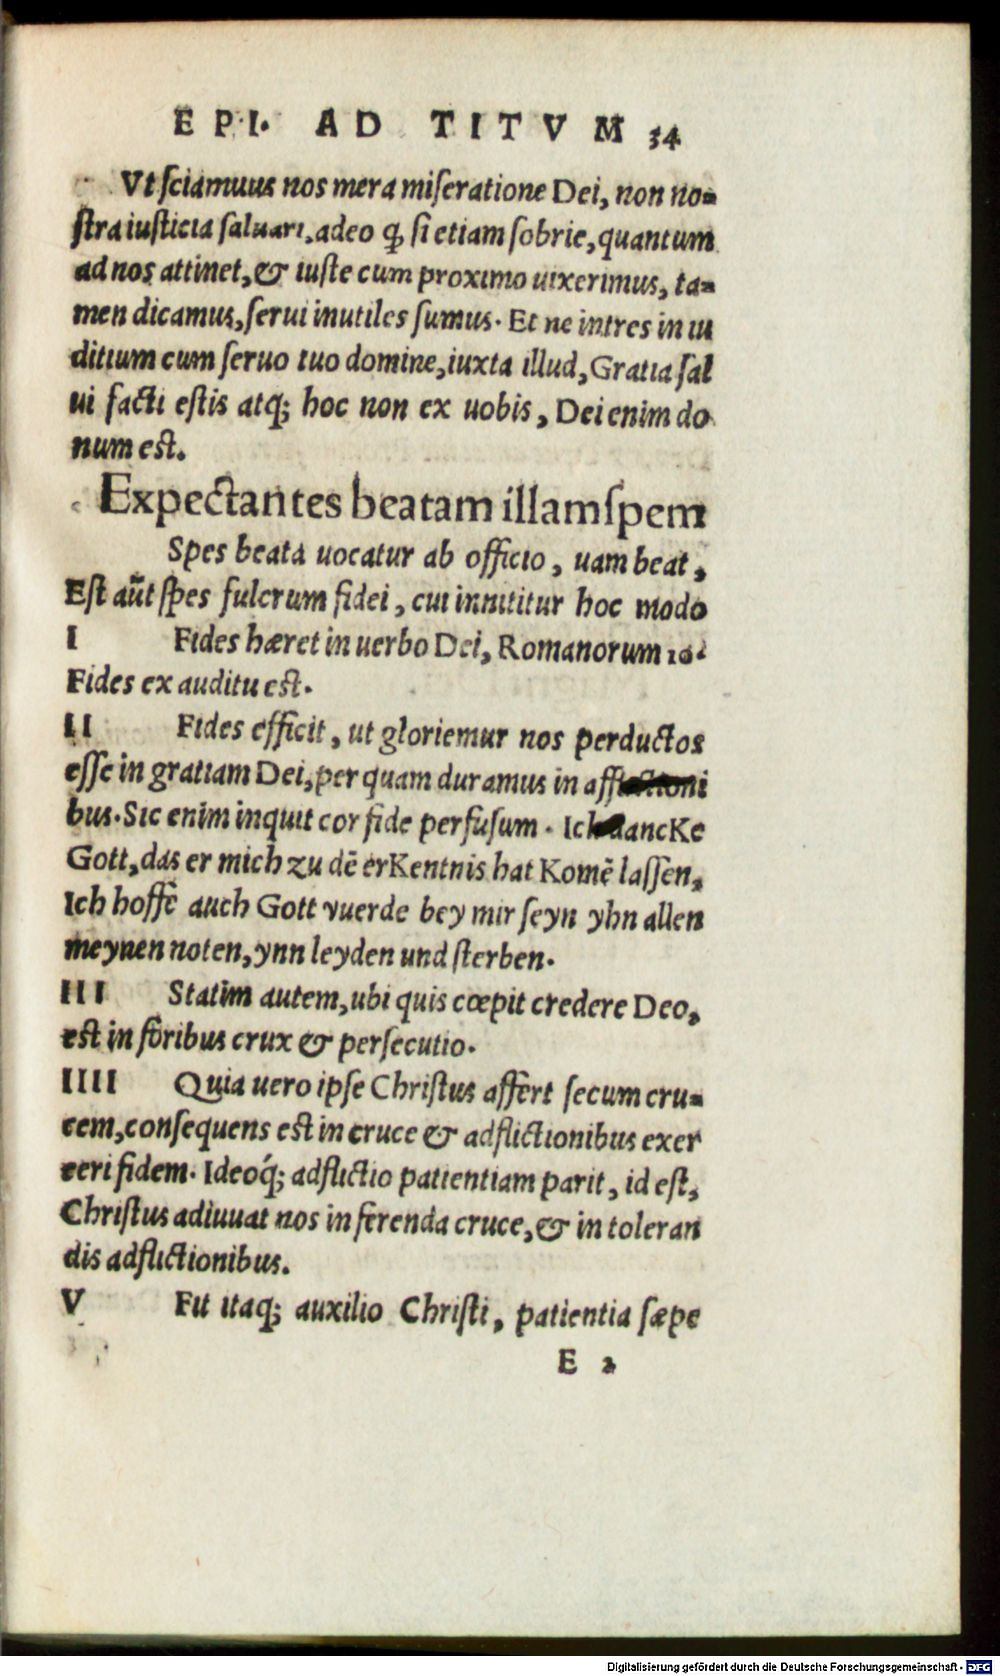 EPI. AD TITVM 34
Vt sciamuus nos mera miseratione Dei, non no-
stra iusticia saluari, adeo ꝙ si etiam sobrie, quantum
ad nos attinet, & iuste cum proximo uixerimus, ta-
men dicamus, serui inutiles sumus. Et ne intres in iu
ditium cum seruo tuo domine, iuxta illud, Gratia sal
ui facti estis atq; hoc non ex uobis, Dei enim do
num est.
Expectantes beatam illam spem
Spes beata uocatur ab officio, uam beat,
Est aūt spes fulcrum fidei, cui innititur hoc modo
I Fides hæret in uerbo Dei, Romanorum 10.
Fides ex auditu est.
II Fides efficit, ut gloriemur nos perductos
esse in gratiam Dei, per quam duramus in afflictioni
bus. Sic enim inquit cor fide perfusum. Ich dancKe
Gott, das er mich zu dē erKentnis hat Komē lassen,
Ich hoffe auch Gott vuerde bey mir seyn yhn allen
meynen noten, ynn leyden und sterben.
III Statim autem, ubi quis cœpit credere Deo,
est in foribus crux & persecutio.
IIII Quia uero ipse Christus affert secum cru-
cem, consequens est in cruce & adflictionibus exer
ceri fidem. Ideoq́; adflictio patientiam parit, id est,
Christus adiuuat nos in ferenda cruce, & in toleran
dis adflictionibus.
V Fit itaq; auxilio Christi, patientia sæpe
E 2
Digitalisierung gefördert durch die Deutsche Forschungsgemeinschaft - DFG